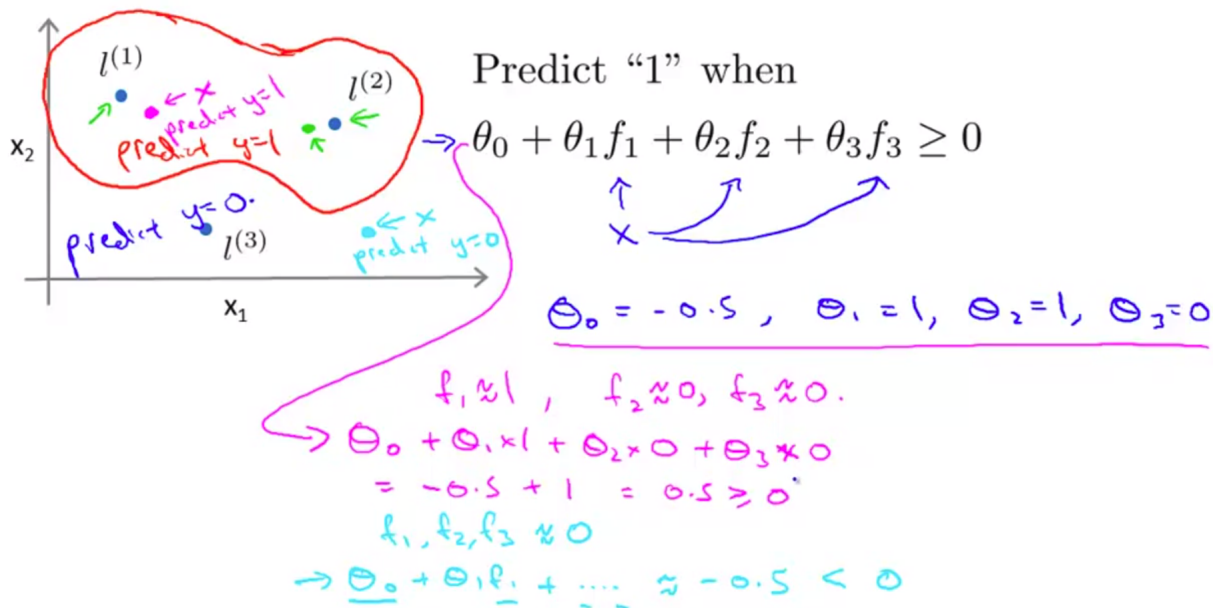 l^(1)
← x
predict y=1
l^(2)
predict y=1
x₂
predict y=0.
l^(3)
← x
predict y=0
x₁
Predict “1” when
→ θ₀ + θ₁f₁ + θ₂f₂ + θ₃f₃ ≥ 0
x
θ₀ = -0.5, θ₁ = 1, θ₂ = 1, θ₃ = 0
f₁ ≈ 1, f₂ ≈ 0, f₃ ≈ 0.
θ₀ + θ₁ × 1 + θ₂ × 0 + θ₃ × 0
= -0.5 + 1 = 0.5 ≥ 0
f₁, f₂, f₃ ≈ 0
→ θ₀ + θ₁f₁ + .... ≈ -0.5 < 0